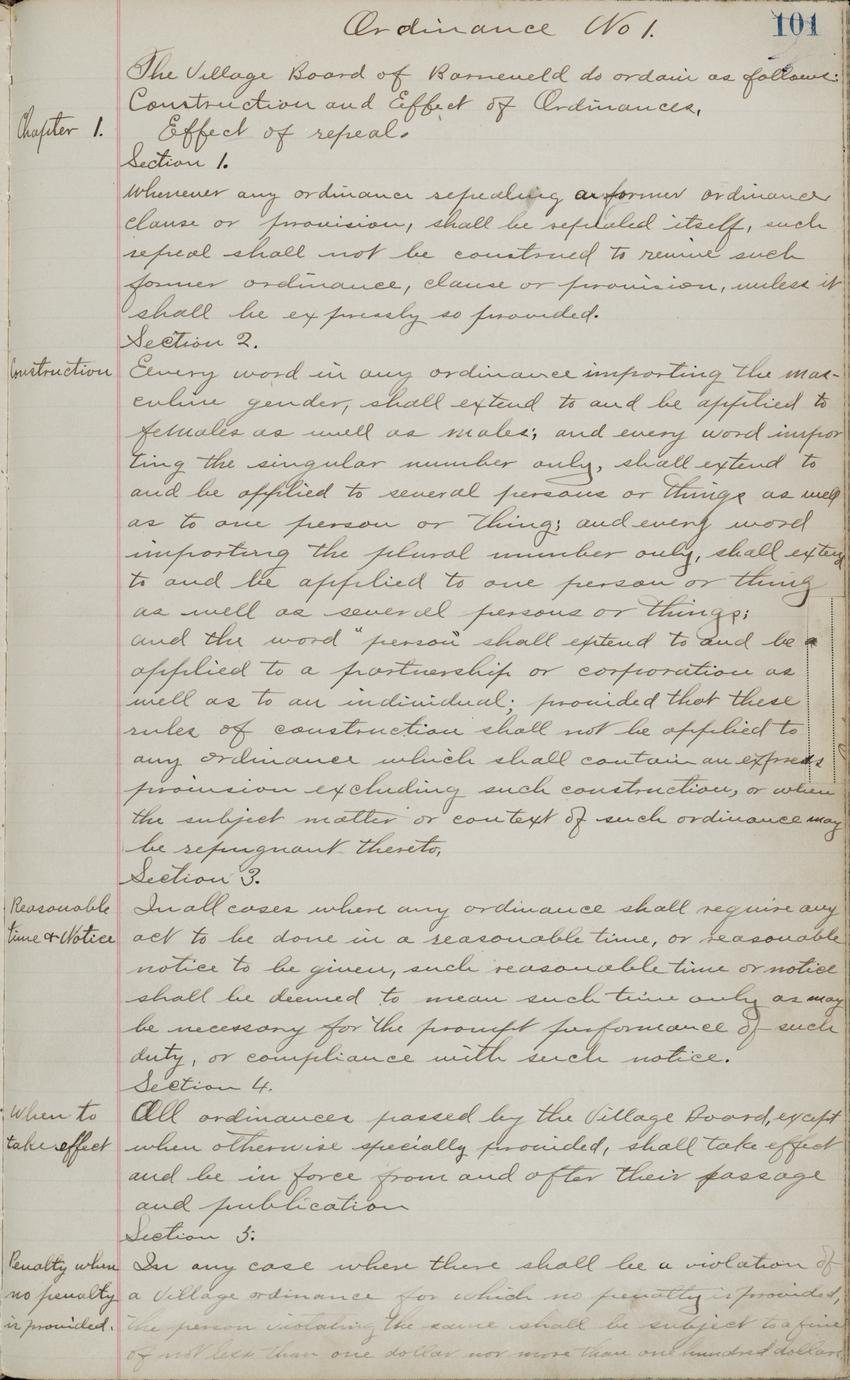 Ordinance No 1.
101
The Village Board of Barneveld do ordain as follows:
Construction and Effect of Ordinances,
Chapter 1.
Effect of repeal.
Section 1.
Whenever any ordinance repealing a former ordinance
clause or provision, shall be repealed itself, such
repeal shall not be construed to revive such
former ordinance, clause or provision, unless it
shall be expressly so provided.
Section 2.
Construction
Every word in any ordinance importing the mas-
culine gender, shall extend to and be applied to
females as well as males; and every word impor
ting the singular number only, shall extend to
and be applied to several persons or things as well
as to one person or thing; and every word
importing the plural number only, shall extend
to and be applied to one person or thing
as well as several persons or things;
and the word "person" shall extend to and be
applied to a partnership or corporation as
well as to an individual; provided that these
rules of construction shall not be applied to
any ordinance which shall contain an express
provision excluding such construction, or when
the subject matter or context of such ordinance may
be repugnant thereto,
Section 3.
Reasonable
time & Notice
In all cases where any ordinance shall require any
act to be done in a reasonable time, or reasonable
notice to be given, such reasonable time or notice
shall be deemed to mean such time only as may
be necessary for the prompt performance of such
duty, or compliance with such notice.
Section 4.
When to
take effect
All ordinances passed by the Village Board, except
when otherwise specially provided, shall take effect
and be in force from and after their passage
and publication
Section 5.
Penalty when
no penalty
is provided.
In any case where there shall be a violation of
a Village ordinance for which no penalty is provided,
the person violating the same shall be subject to a fine
of not less than one dollar nor more than one hundred dollars